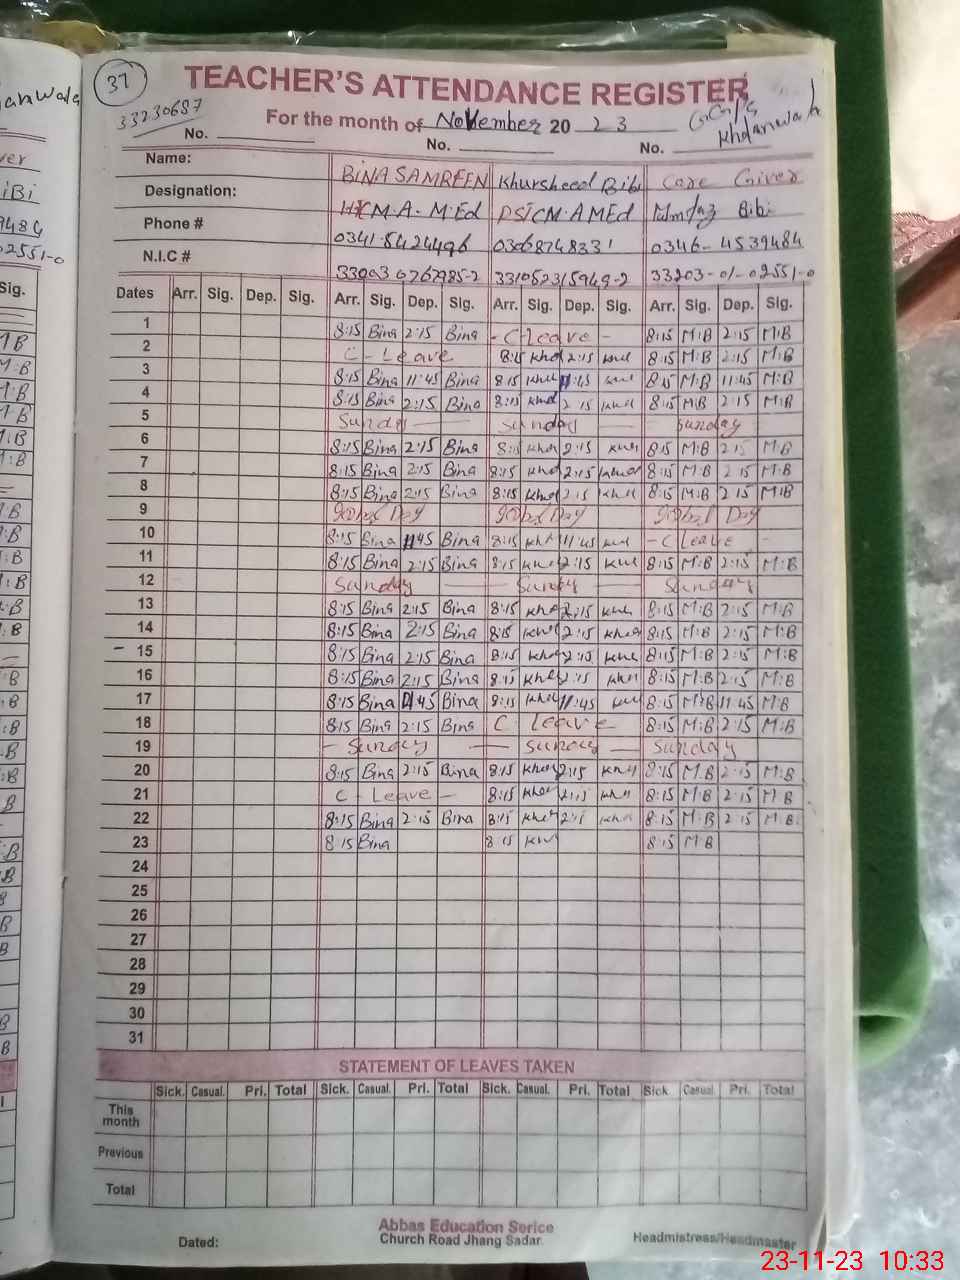 37
TEACHER'S ATTENDANCE REGISTER
33230687
For the month of November 20 23
G.G.P/S
Khdanwala
No. No. No.
Name: BINA SAMREEN Khursheed Bibi Care Giver
Designation: M.A - M.Ed PSTC M.A MEd Mumtaz Bibi
Phone # 0341-8424496 03068748331 0346-4539484
N.I.C # 33203-01-02551-0
Dates Arr. Sig. Dep. Sig. Arr. Sig. Dep. Sig. Arr. Sig. Dep. Sig. Arr. Sig. Dep. Sig.
1 8:15 Bina 2:15 Bina - C-leave - 8:15 M:B 2:15 M:B
2 C - Leave 8:15 khd 2:15 khd 8:15 M:B 2:15 M:B
3 8:15 Bina 11:45 Bina 8:15 khd 11:45 khd 8:15 M:B 11:45 M:B
4 8:15 Bina 2:15 Bina 8:15 khd 2:15 khd 8:15 M:B 2:15 M:B
5 Sunday Sunday Sunday
6 8:15 Bina 2:15 Bina 8:15 khd 2:15 khd 8:15 M:B 2:15 M:B
7 8:15 Bina 2:15 Bina 8:15 khd 2:15 khd 8:15 M:B 2:15 M:B
8 8:15 Bina 2:15 Bina 8:15 khd 2:15 khd 8:15 M:B 2:15 M:B
9 Iqbal Day Iqbal Day Iqbal Day
10 8:15 Bina 11:45 Bina 8:15 khd 11:45 khd - C Leave -
11 8:15 Bina 2:15 Bina 8:15 khd 2:15 khd 8:15 M:B 2:15 M:B
12 Sunday Sunday Sunday
13 8:15 Bina 2:15 Bina 8:15 khd 2:15 khd 8:15 M:B 2:15 M:B
14 8:15 Bina 2:15 Bina 8:15 khd 2:15 khd 8:15 M:B 2:15 M:B
15 8:15 Bina 2:15 Bina 8:15 khd 2:15 khd 8:15 M:B 2:15 M:B
16 8:15 Bina 2:15 Bina 8:15 khd 2:15 khd 8:15 M:B 2:15 M:B
17 8:15 Bina 11:45 Bina 8:15 khd 11:45 khd 8:15 M:B 11:45 M:B
18 8:15 Bina 2:15 Bina C Leave 8:15 M:B 2:15 M:B
19 - Sunday - Sunday - Sunday
20 8:15 Bina 2:15 Bina 8:15 khd 2:15 khd 8:15 M:B 2:15 M:B
21 C - Leave - 8:15 khd 2:15 khd 8:15 M:B 2:15 M:B
22 8:15 Bina 2:15 Bina 8:15 khd 2:15 khd 8:15 M:B 2:15 M:B
23 8:15 Bina 8:15 khd 8:15 M:B
24
25
26
27
28
29
30
31
STATEMENT OF LEAVES TAKEN
Sick. Casual. Pri. Total Sick. Casual. Pri. Total Sick. Casual. Pri. Total Sick Casual Pri. Total
This
month
Previous
Total
Dated:
Abbas Education Serice
Church Road Jhang Sadar.
Headmistress/Headmaster
23-11-23 10:33